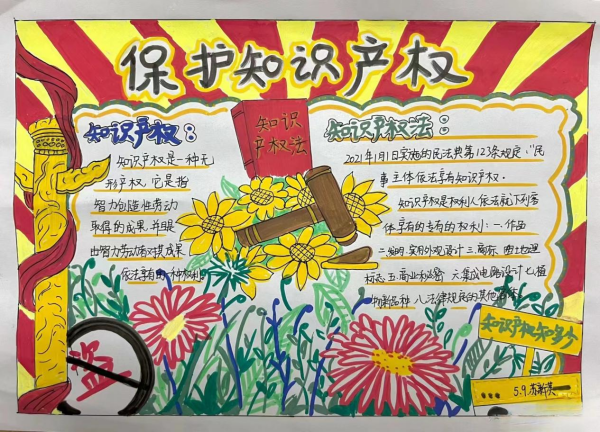 保护知识产权
知识产权：
知识产权是一种无
形产权，它是指
智力创造性劳动
取得的成果，并且
由智力劳动者对其成果
依法享有的一种权利
知识
产权法
知识产权法：
2021年1月1日实施的民法典第123条规定，"民
事主体依法享有知识产权．
知识产权是权利人依法就下列客
体享有的专有的权利：一．作品
二．实用外观设计 三．商标．四．地理
标志．五．商业秘密 六．集成电路设计 七．植
物新品种．八．法律规定的其他
盗
知识产权知多少
5.9.